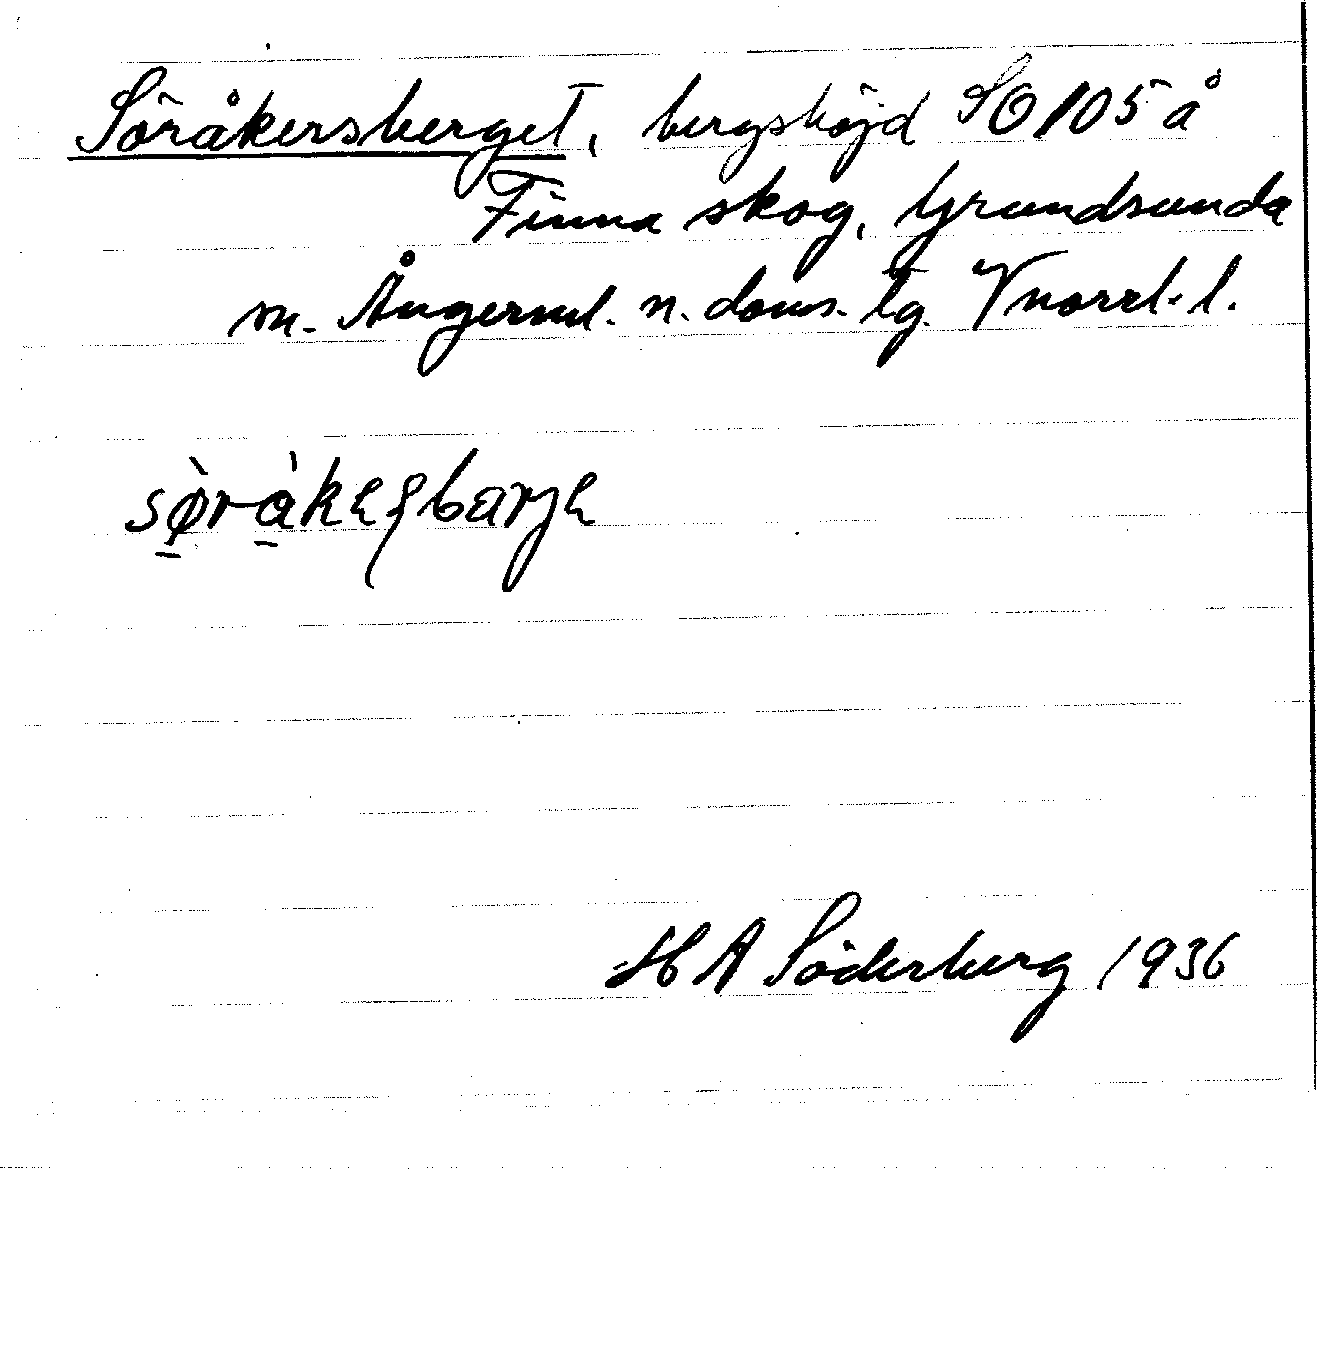 Söråkersberget, bergshöjd SO 105 å
Finna skog, Grundsunda
sn. Ångerml. n. doms. tg. Vnorrl. l.
sø̀ràkeʂbarje
H A Söderberg 1936